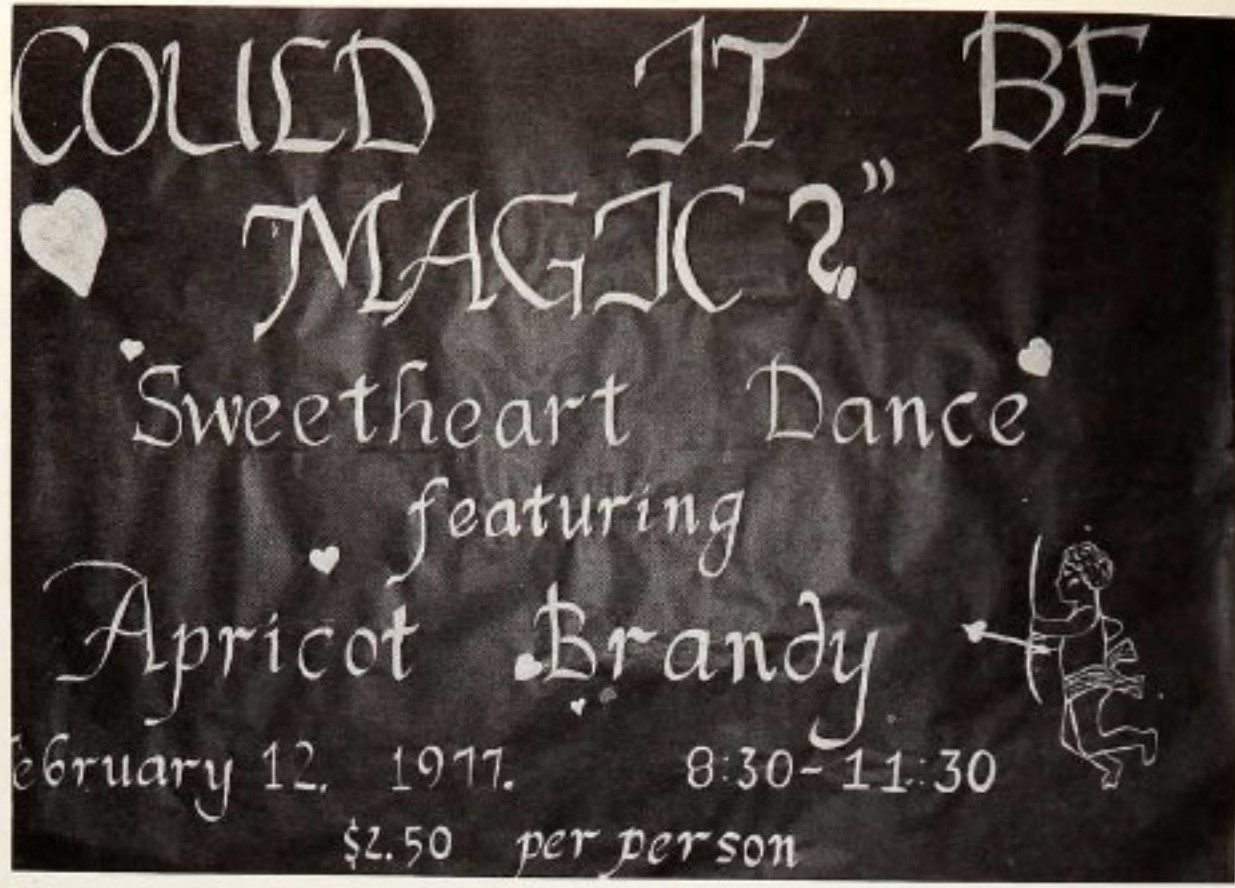 COULD IT BE
MAGIC?"
Sweetheart Dance
featuring
Apricot Brandy
ebruary 12, 1977.
8:30-11:30
$2.50 per person